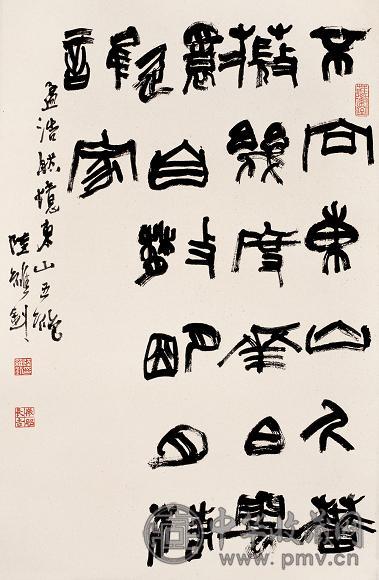 不向東山久薔
薇幾度花白雲
還自散明月落
誰家
孟浩然憶東山五絕
陸維釗
中华收藏网
www.pmv.cn